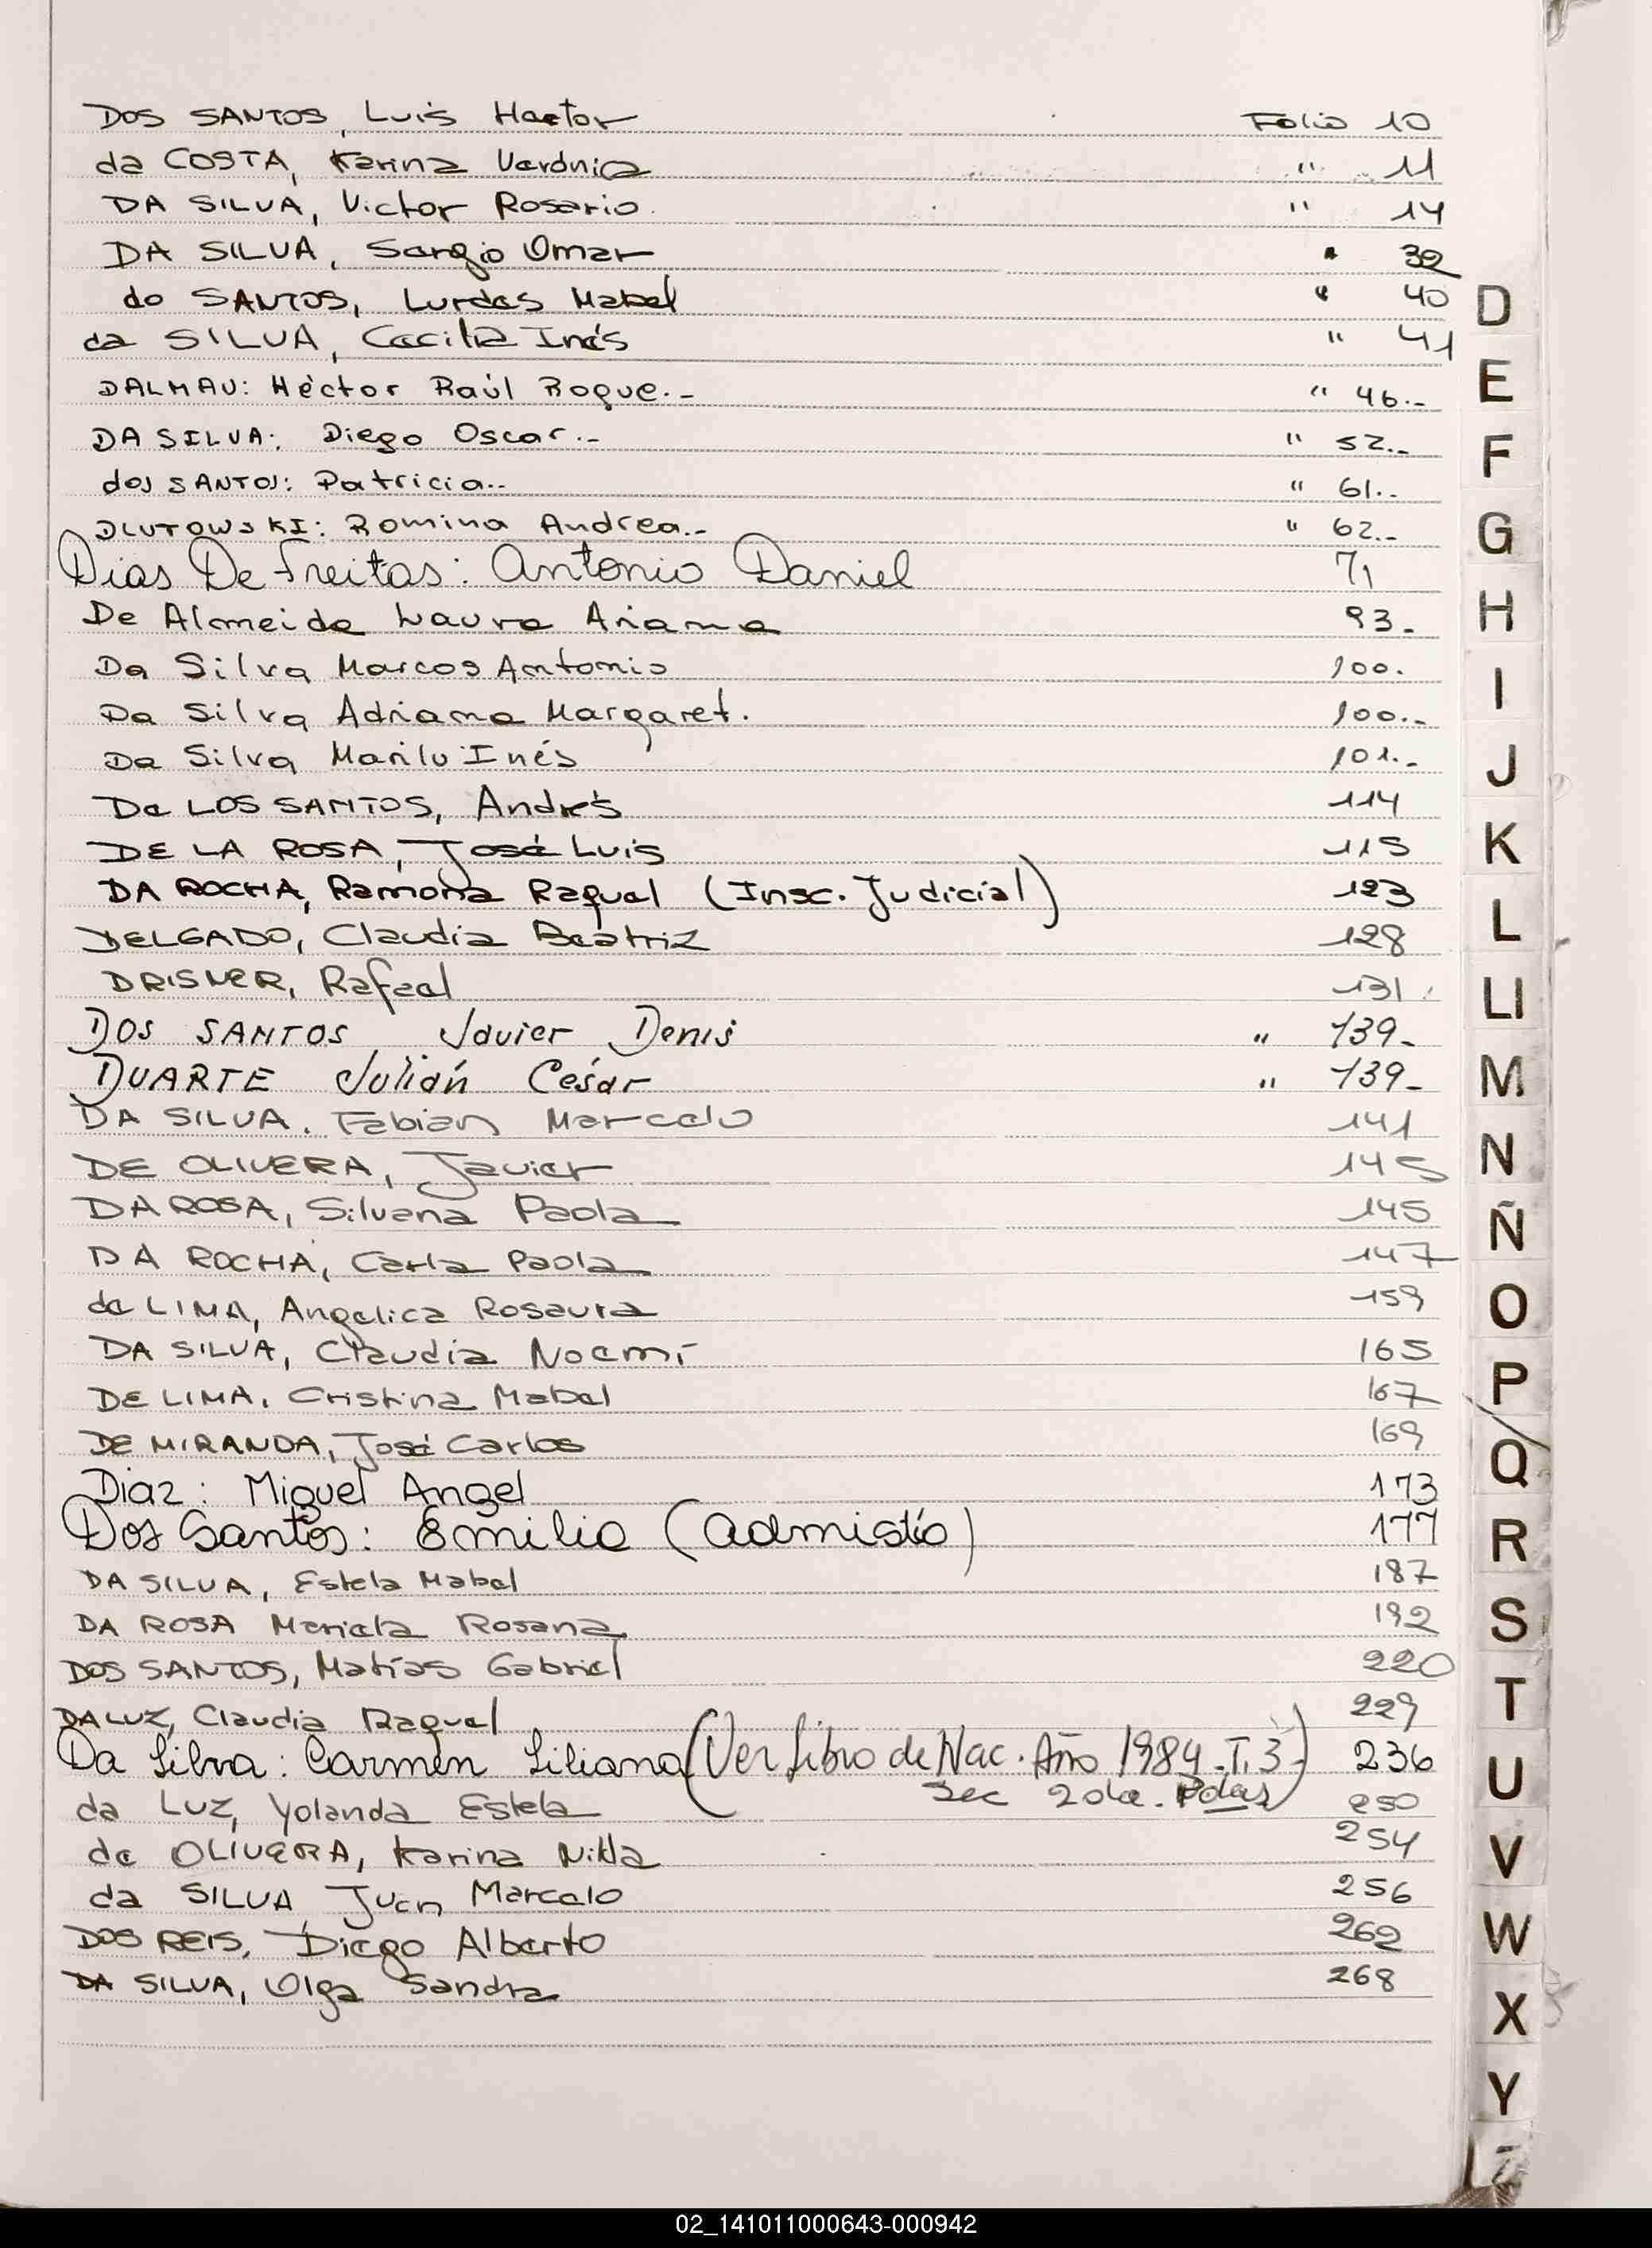 DOS SANTOS, Luis Hector Folio 10
da COSTA, Karina Verónica " 11
DA SILVA, Victor Rosario. " 14
DA SILVA, Sergio Omar " 32
do SANTOS, Lurdes Mabel " 40
da SILVA, Cecilia Inés " 41
DALMAU: Héctor Raúl Roque.- " 46.-
DA SILVA: Diego Oscar.- " 52.-
dos SANTOS: Patricia.- " 61.-
DLUTOWSKI: Romina Andrea.- " 62.-
Dias De Freitas: Antonio Daniel 71
De Almeida Laura Ariana 93.
Da Silva Marcos Antonio 100.
Da Silva Adriana Margaret. 100.-
Da Silva Marilu Inés 101.-
De LOS SANTOS, Andrés 114
DE LA ROSA, José Luis 115
DA ROCHA, Ramona Raquel (Insc. Judicial) 123
DELGADO, Claudia Beatriz 128
DRISNER, Rafael 131
DOS SANTOS Javier Denis " 139-
DUARTE Julián César " 139-
DA SILVA. Fabian Marcelo 141
DE OLIVERA, Javier 145
DA ROSA, Silvana Paola 145
DA ROCHA, Carla Paola 147
de LIMA, Angelica Rosaura 159
DA SILVA, Claudia Noemí 165
DE LIMA, Cristina Mabel 167
DE MIRANDA, José Carlos 169
Diaz: Miguel Angel 173
Dos Santos: Emilio (admistio) 177
DA SILVA, Estela Mabel 187
DA ROSA Mariela Rosana 192
DOS SANTOS, Matías Gabriel 220
DA LUZ, Claudia Raquel 229
Da Silva: Carmen Liliana (Ver Libro de Nac. Año 1984-T, 3- 236
Sec 2da. Pdas)
da LUZ, Yolanda Estela 250
de OLIVERA, Karina Nilda 254
da SILVA, Juan Marcelo 256
DOS REIS, Diego Alberto 262
DA SILVA, Olga Sandra 268
D
E
F
G
H
I
J
K
L
Ll
M
N
Ñ
O
P/Q
R
S
T
U
V
W
X
Y
Z
02_141011000643-000942